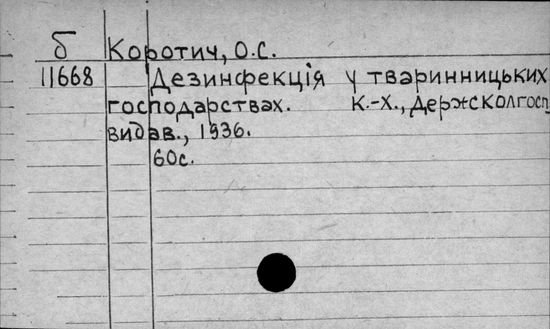 б Коротич, О.С.
11668 Дезинфекція у тваринницьких
господарствах. К.-Х., Держсколгосп
видав., 1936.
60с.